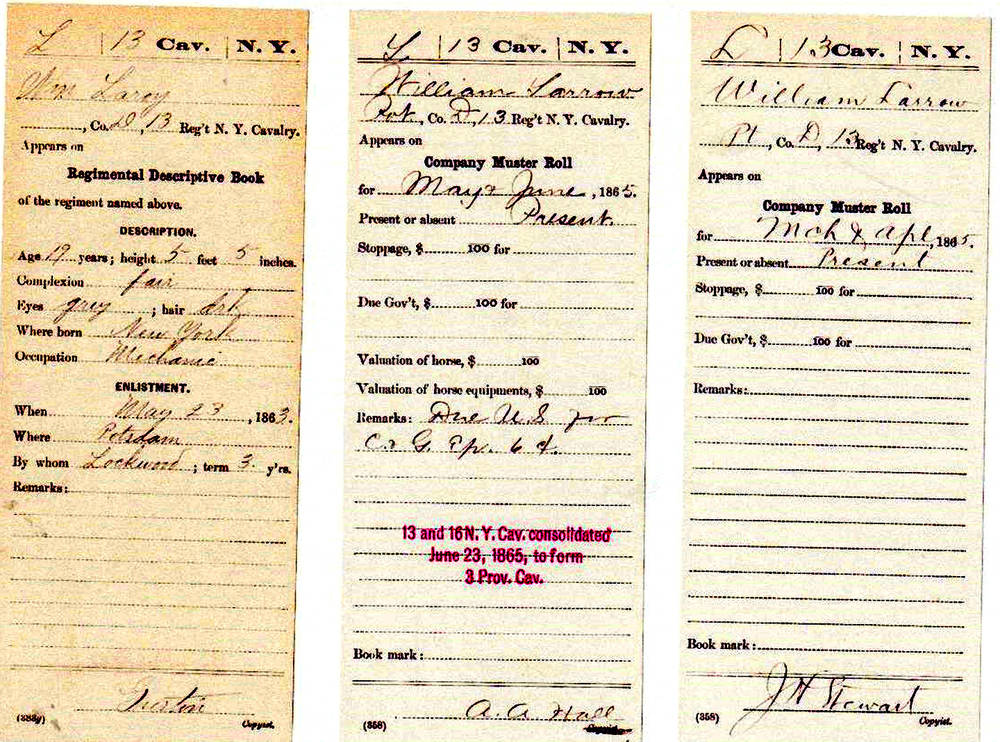 L | 13 Cav. | N. Y.
Wm Laroy
, Co. D, 13 Reg't N. Y. Cavalry.
Appears on
Regimental Descriptive Book
of the regiment named above.
DESCRIPTION.
Age 19 years; height 5 feet 5 inches.
Complexion fair
Eyes grey ; hair drk
Where born New York
Occupation Mechanic
ENLISTMENT.
When May 23, 1863.
Where Potsdam
By whom Lockwood ; term 3 y'rs.
Remarks:
Copyist.
L | 13 Cav. | N. Y.
William Larrow
Pvt, Co. D, 13 Reg't N. Y. Cavalry.
Appears on
Company Muster Roll
for May & June, 1865.
Present or absent Present.
Stoppage, $ 100 for
Due Gov't, $ 100 for
Valuation of horse, $ 100
Valuation of horse equipments, $ 100
Remarks: Due U.S. for
C. & G. Ep. 6 d.
13 and 16 N. Y. Cav. consolidated
June 23, 1865, to form
3 Prov. Cav.
Book mark:
A. A. Hall
(358) Copyist.
L | 13 Cav. | N. Y.
William Larrow
Pt, Co. D, 13 Reg't N. Y. Cavalry.
Appears on
Company Muster Roll
for Mch & Apl, 1865.
Present or absent Present
Stoppage, $ 100 for
Due Gov't, $ 100 for
Remarks:
Book mark:
J H Stewart
(358) Copyist.